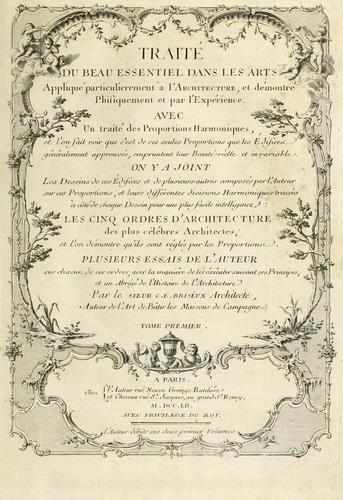 TRAITÉ
DU BEAU ESSENTIEL DANS LES ARTS
Appliqué particulierement à l'ARCHITECTURE, et démontré
Phisiquement et par l'Expérience.
AVEC
Un traité des Proportions Harmoniques,
et l'on fait voir que c'est de ces seules Proportions que les Edifices
généralement approuvés, empruntent leur Beauté réelle et invariable.
ON Y A JOINT
Les Desseins de ces Edifices et de plusieurs autres composés par l'Auteur
sur ces Proportions, et leurs différentes divisions Harmoniques tracées
à côté de chaque Dessein pour une plus facile intelligence:
LES CINQ ORDRES D'ARCHITECTURE
des plus célébres Architectes,
et l'on démontre qu'ils sont réglés par les Proportions.
PLUSIEURS ESSAIS DE L'AUTEUR
sur chacun de ces ordres, avec la maniére de les éxécuter suivant ses Principes,
et un Abrégé de l'Histoire de l'Architecture.
Par le SIEUR C.E. BRISEUX Architecte,
Auteur de l'Art de Bâtir les Maisons de Campagne.
TOME PREMIER.
A PARIS.
Chés l'Auteur rue Neuve Grange Bateliére
et Chereau rue St. Jacques, au grand St. Remy,
M.DCC.LII.
AVEC PRIVILEGE DU ROY.
L'Auteur débite ces deux premier Volumes